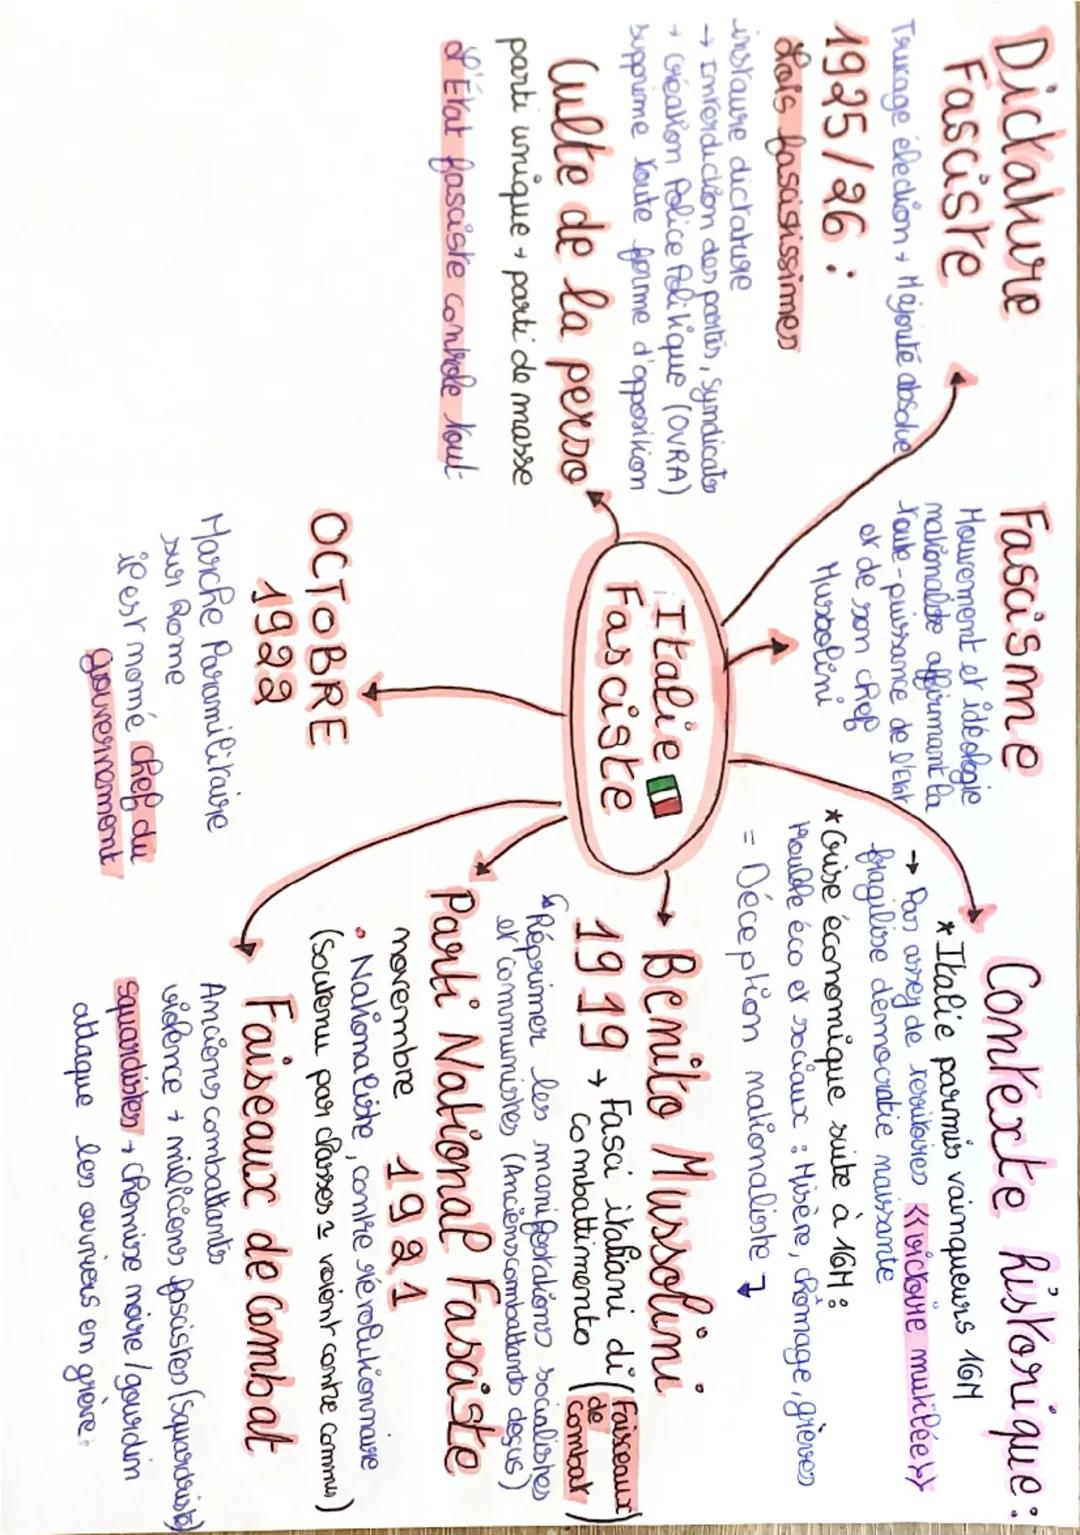 Dictature
Fasciste
Trucage élection + Majorité absolue
1925/26 :
Lois fascisissimes
instaure dictature
→ Interdiction des partis, Syndicats
+ Création Police Politique (OVRA)
supprime toute forme d'opposition
Culte de la perso
parti unique + parti de masse
L'État fasciste controle tout
Fascisme
Mouvement et idéologie
nationaliste affirmant la
toute-puissance de l'Etat
et de son chef
Mussolini
Italie
Fasciste
OCTOBRE
1922
Marche Paramilitaire
sur Rome
il est nomé chef du
gouvernement
Contexte historique :
* Italie parmis vainqueurs 1GM
→ Pas assez de territoires «victoire mutilée»
fragilise démocratie naissante
* Crise économique suite à 1GM :
Trouble éco et sociaux : Misère, chômage, grèves
= Déception nationaliste
Benito Mussolini
1919 → Fasci italiani di (Faisceaux
combattimento de
combat)
Réprimer les manifestations socialistes
et communistes (Anciens combattants deçus)
Parti National Fasciste
novembre 1921
• Nationaliste, contre révolutionnaire
(Soutenu par classes ≥ voient contre commus)
Faiseaux de Combat
Anciens combattants
violence + miliciens fascistes (Squadrists)
squardistes → chemise noire / gourdin
attaque les ouvriers en grève.